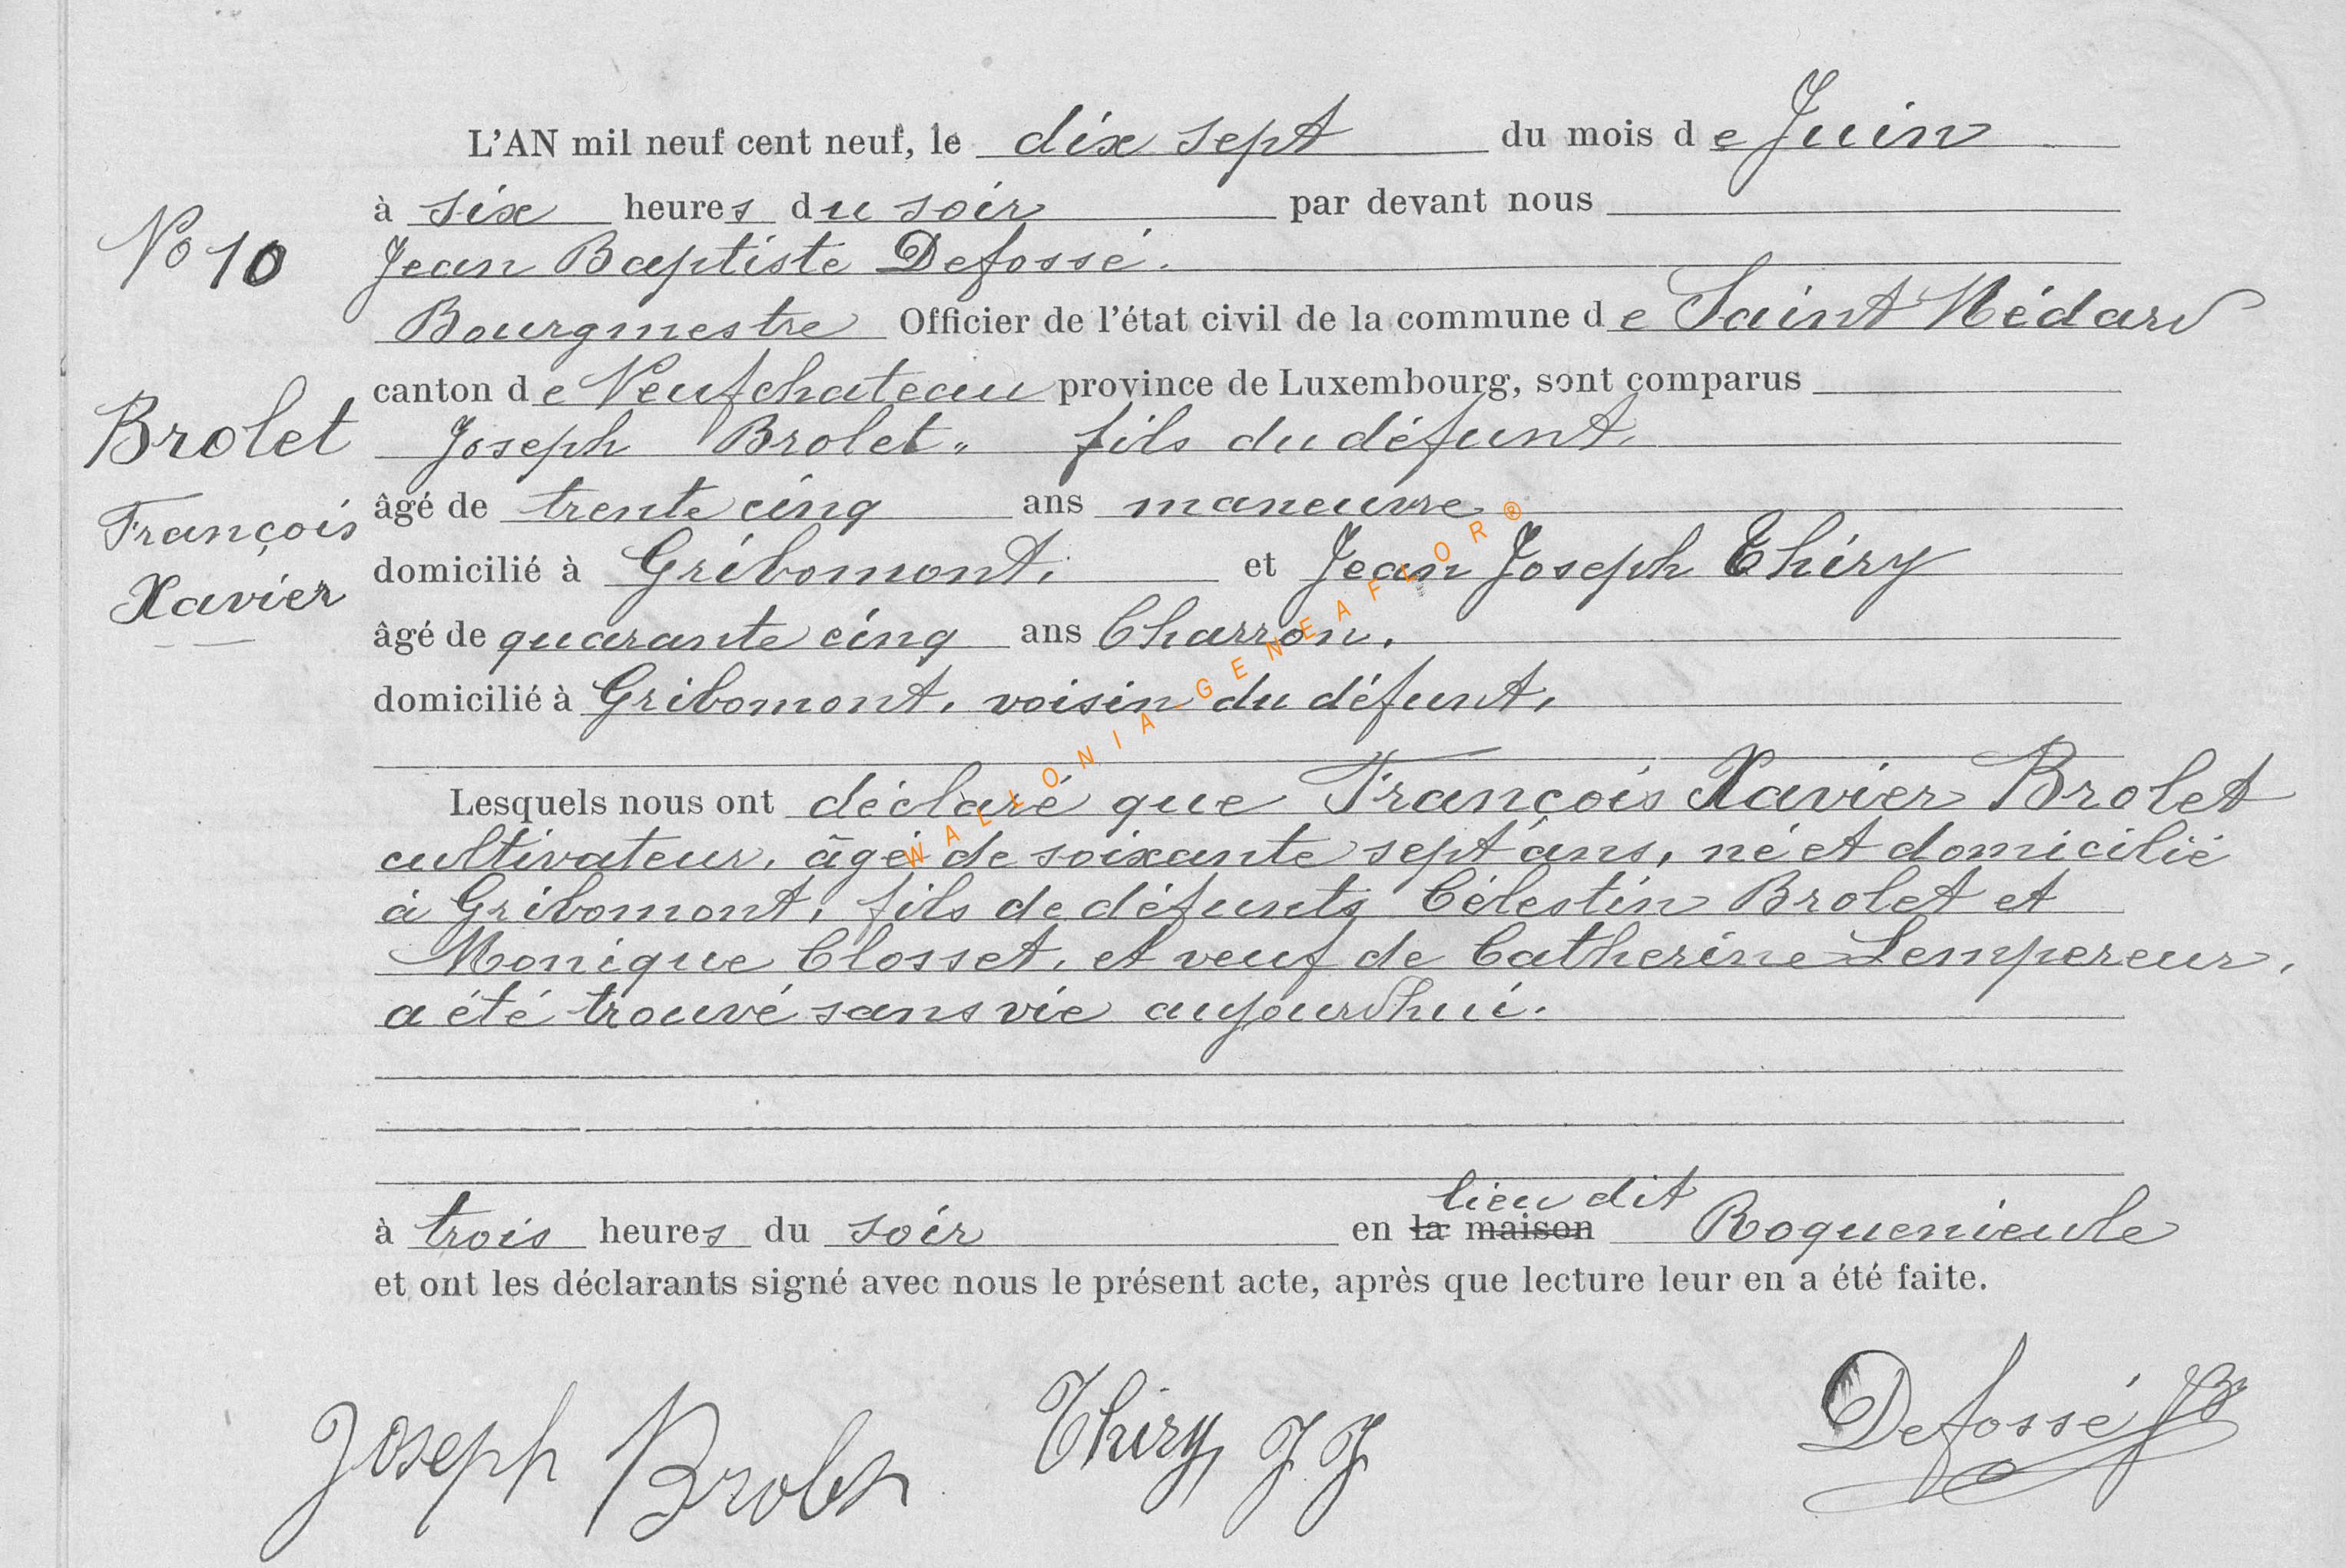 L'AN mil neuf cent neuf, le dix sept du mois de Juin
à six heures du soir par devant nous
No 10
Jean Baptiste Defossé.
Bourgmestre Officier de l'état civil de la commune de Saint Médard
canton de Neufchateau province de Luxembourg, sont comparus
Brolet
Joseph Brolet, fils du défunt,
François
âgé de trente cinq ans maneuvre
Xavier
domicilié à Gribomont, et Jean Joseph Thiry
âgé de quarante cinq ans Charron,
domicilié à Gribomont, voisin du défunt,
WALLONIA-GENEAFLOR®
Lesquels nous ont déclaré que François Xavier Brolet
cultivateur, âgé de soixante sept ans, né et domicilié
à Gribomont, fils de défunts Célestin Brolet et
Monique Closset, et veuf de Catherine Lempereur,
a été trouvé sans vie aujourd'hui.
lieu dit
à trois heures du soir en la maison Roquenieule
et ont les déclarants signé avec nous le présent acte, après que lecture leur en a été faite.
Joseph Brolet Thiry J J Defossé JB